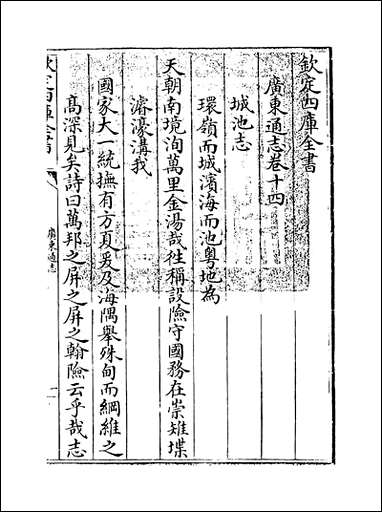 欽定四庫全書
廣東通志卷十四
城池志
環嶺而城濱海而池粤地為
天朝南境洵萬里金湯哉徃稱設險守國務在崇雉堞
濬濠溝我
國家大一統撫有方夏爰及海隅舉殊甸而綱維之
高深見矣詩曰萬邦之屏之屏之翰險云乎哉志
廣東通志